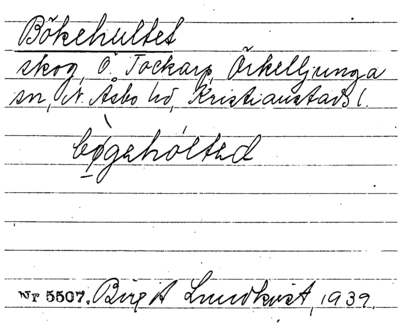 Bökehultet
skog, Ö. Tockarp, Örkelljunga
sn, N. Åsbo hd, Kristianstads l.
bø̀gehólted
Nr 5507. Birgit Lundkvist, 1939.